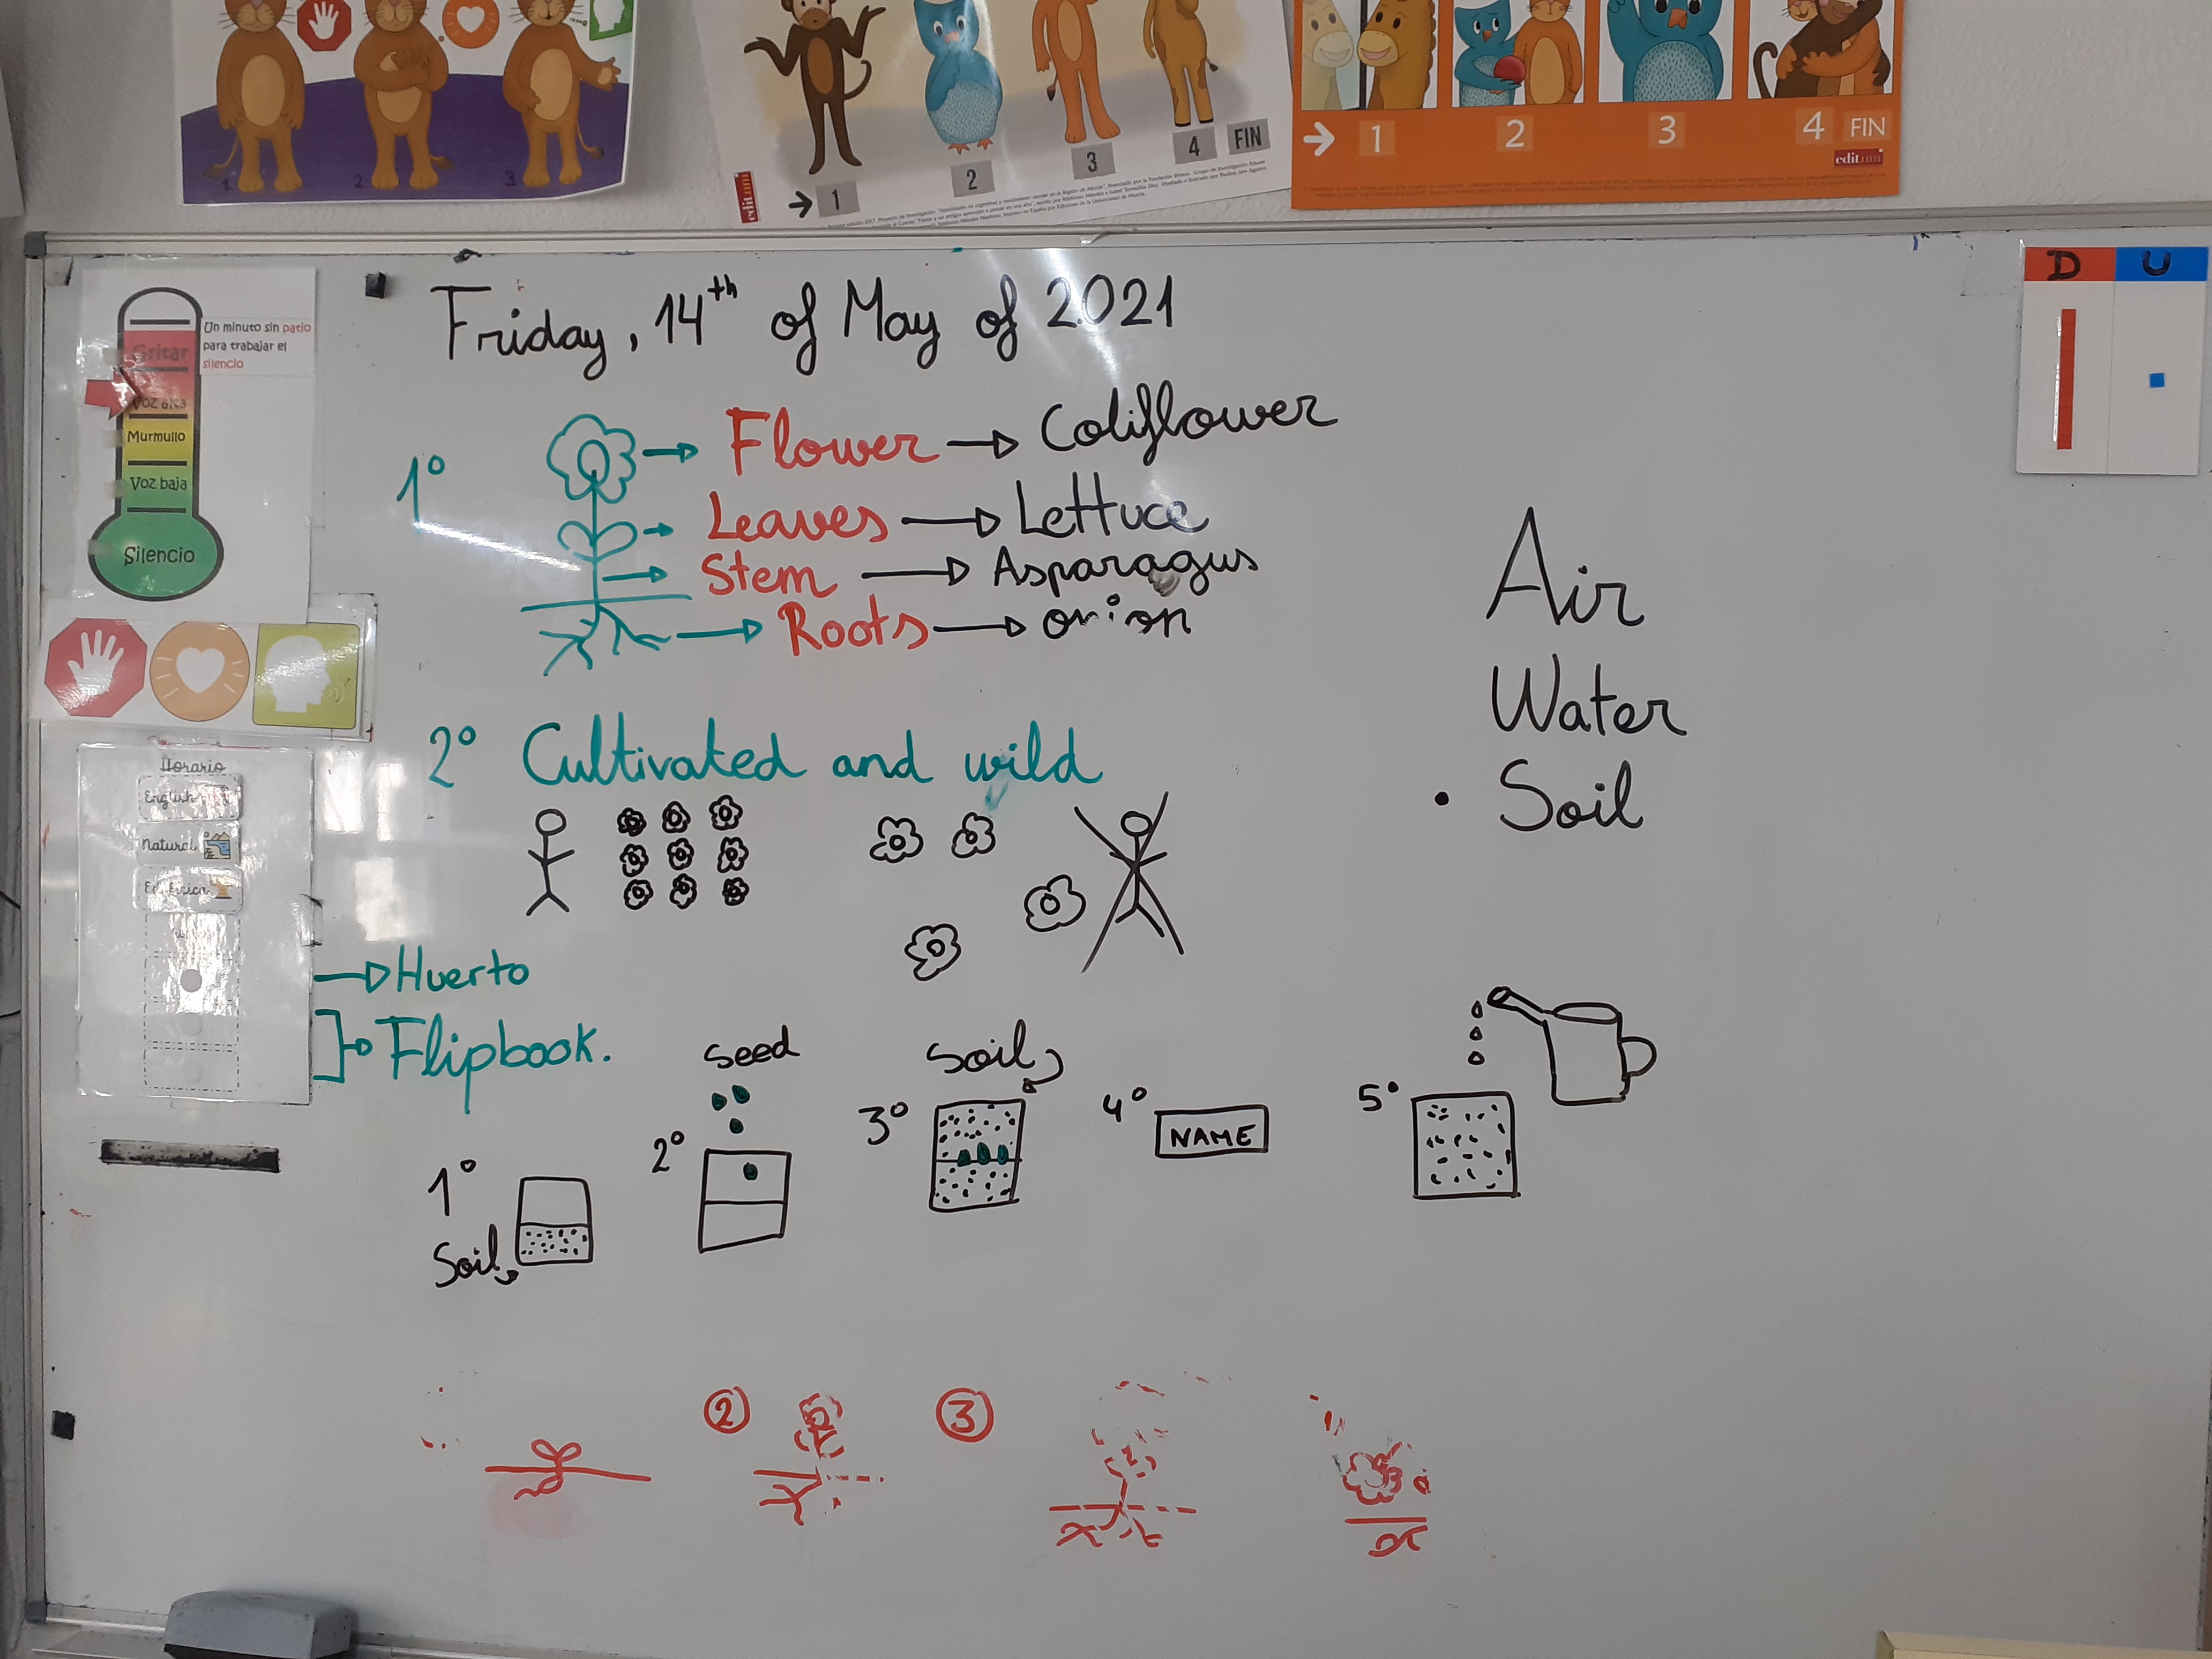 1 2 3
→ 1 2 3 4 FIN
editum
→ 1 2 3 4 FIN
editum
Friday, 14th of May of 2.021
D U
Un minuto sin patio
para trabajar el
silencio
Gritar
Voz alta
Murmullo
Voz baja
Silencio
1º
Flower → Coliflower
Leaves → Lettuce
Stem → Asparagus
Roots → onion
Air
Water
• Soil
2º Cultivated and wild
Horario
English
Natural
Ed. física
→ Huerto
→ Flipbook.
1º
Soil
seed
2º
Soil
3º
4º NAME
5º
2 3